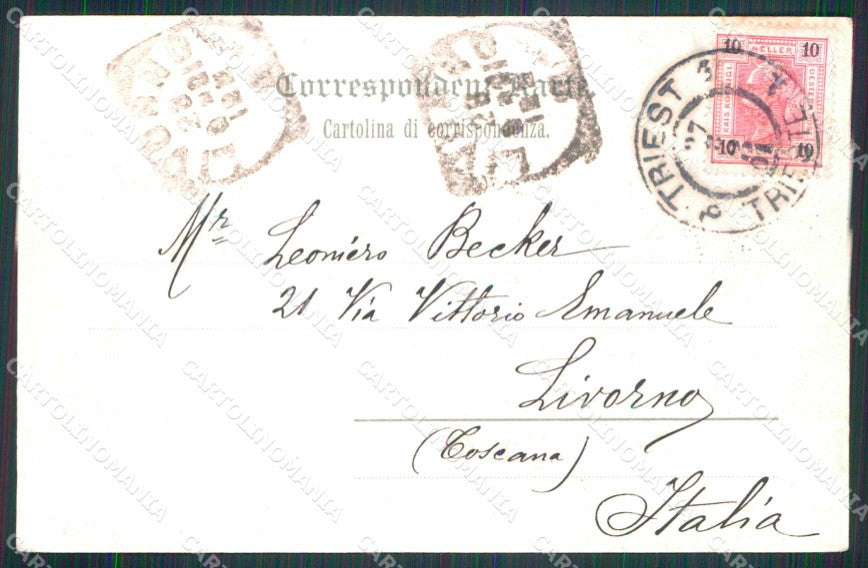 Correspondenz-Karte.
Cartolina di corrispondenza.
10 HELLER 10
KAIS KOENIGL
10 10
TRIEST
TRIESTE
Mr Leoniero Becker
21 Via Vittorio Emanuele
Livorno
(Toscana)
Italia
CARTOLINOMANIA